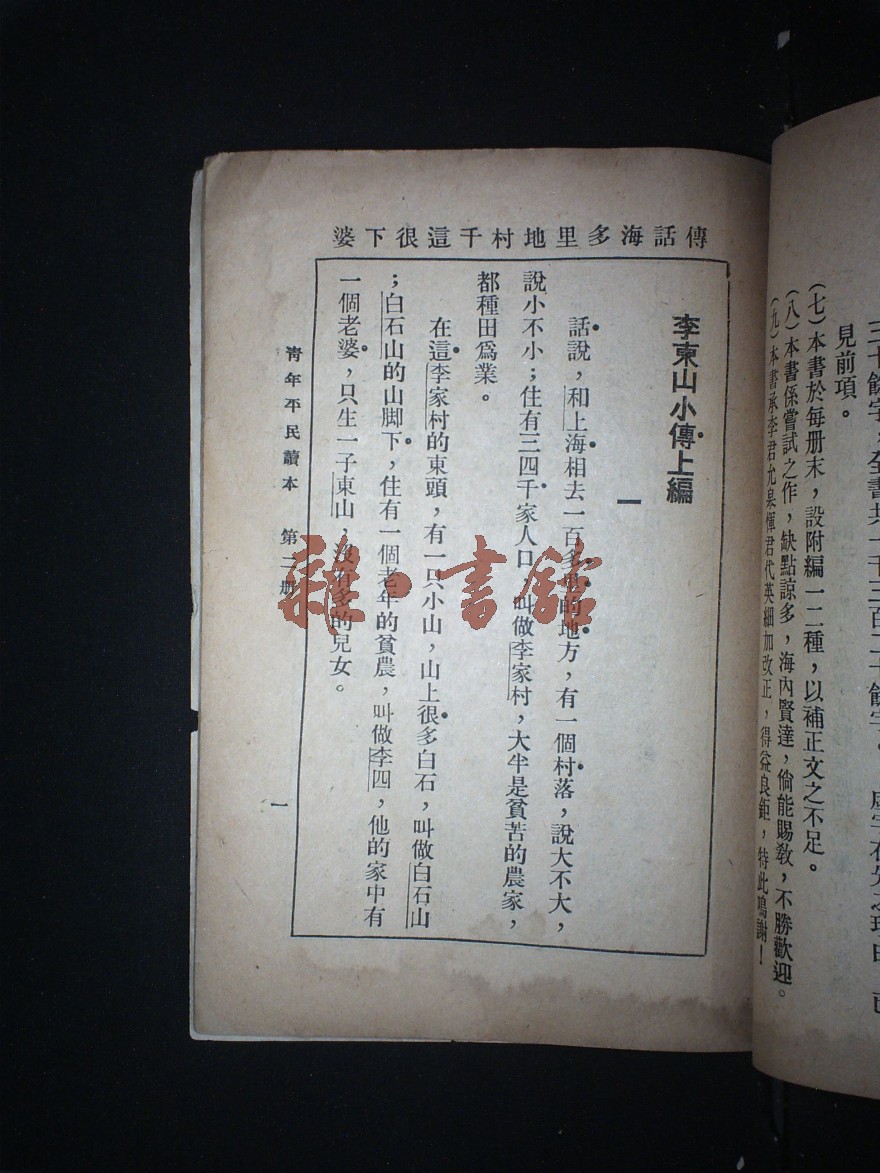 三十餘字，全書共一千三百二十餘字。
見前項。
（七）本書於每册末，設附編一二種，以補正文之不足。
（八）本書係嘗試之作，缺點諒多，海內賢達，倘能賜敎，不勝歡迎。
（九）本書承李君允臬惲君代英細加改正，得益良鉅，特此鳴謝！
傳話海多里地村千這很下婆
李東山小傳上編
一
話說，和上海相去一百多里的地方，有一個村落，說大不大，
說小不小；住有三四千家人口，叫做李家村，大半是貧苦的農家，
都種田爲業。
在這李家村的東頭，有一只小山，山上很多白石，叫做白石山
；白石山的山脚下，住有一個老年的貧農，叫做李四，他的家中有
一個老婆，只生一子東山，沒有多的兒女。
靑年平民讀本 第二册
一
雜·書館